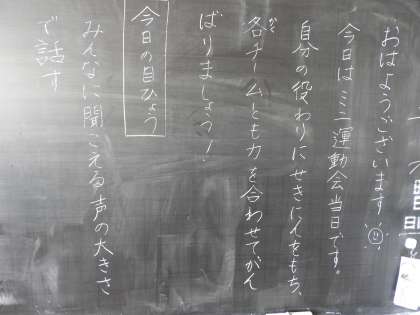 おはようございます!
今日はミニ運動会当日です。
自分の役わりにせきにんをもち、
各チームとも力を合わせてがん
ばりましょう!
今日の目ひょう
みんなに聞こえる声の大きさ
で話す